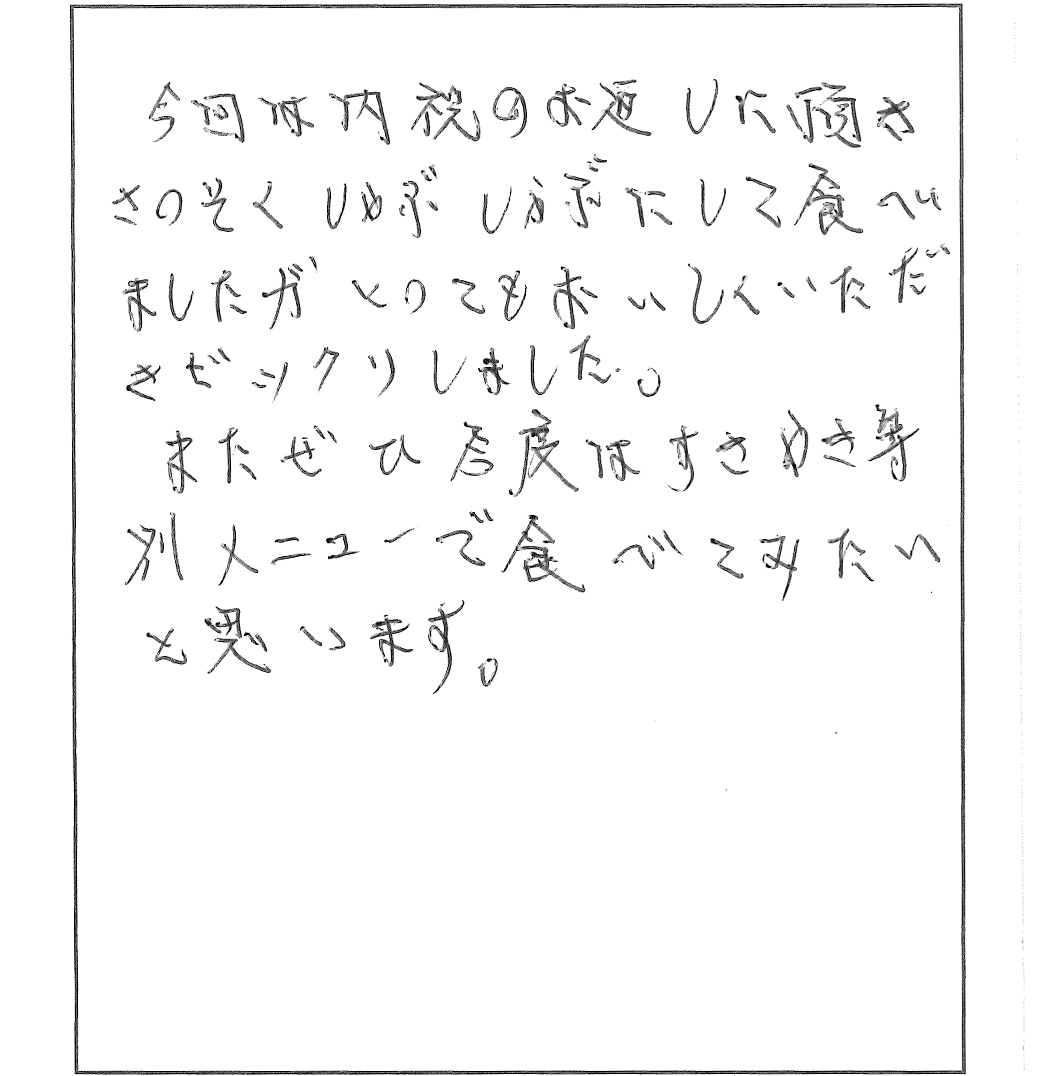 今回は内祝のお返しに頂き
さっそくしゃぶしゃぶにして食べ
ましたがとってもおいしくいただ
きビックリしました。
またぜひ今度はすきやき等
別メニューで食べてみたい
と思います。